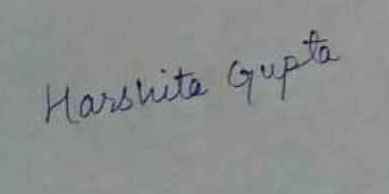 Harshita Gupta